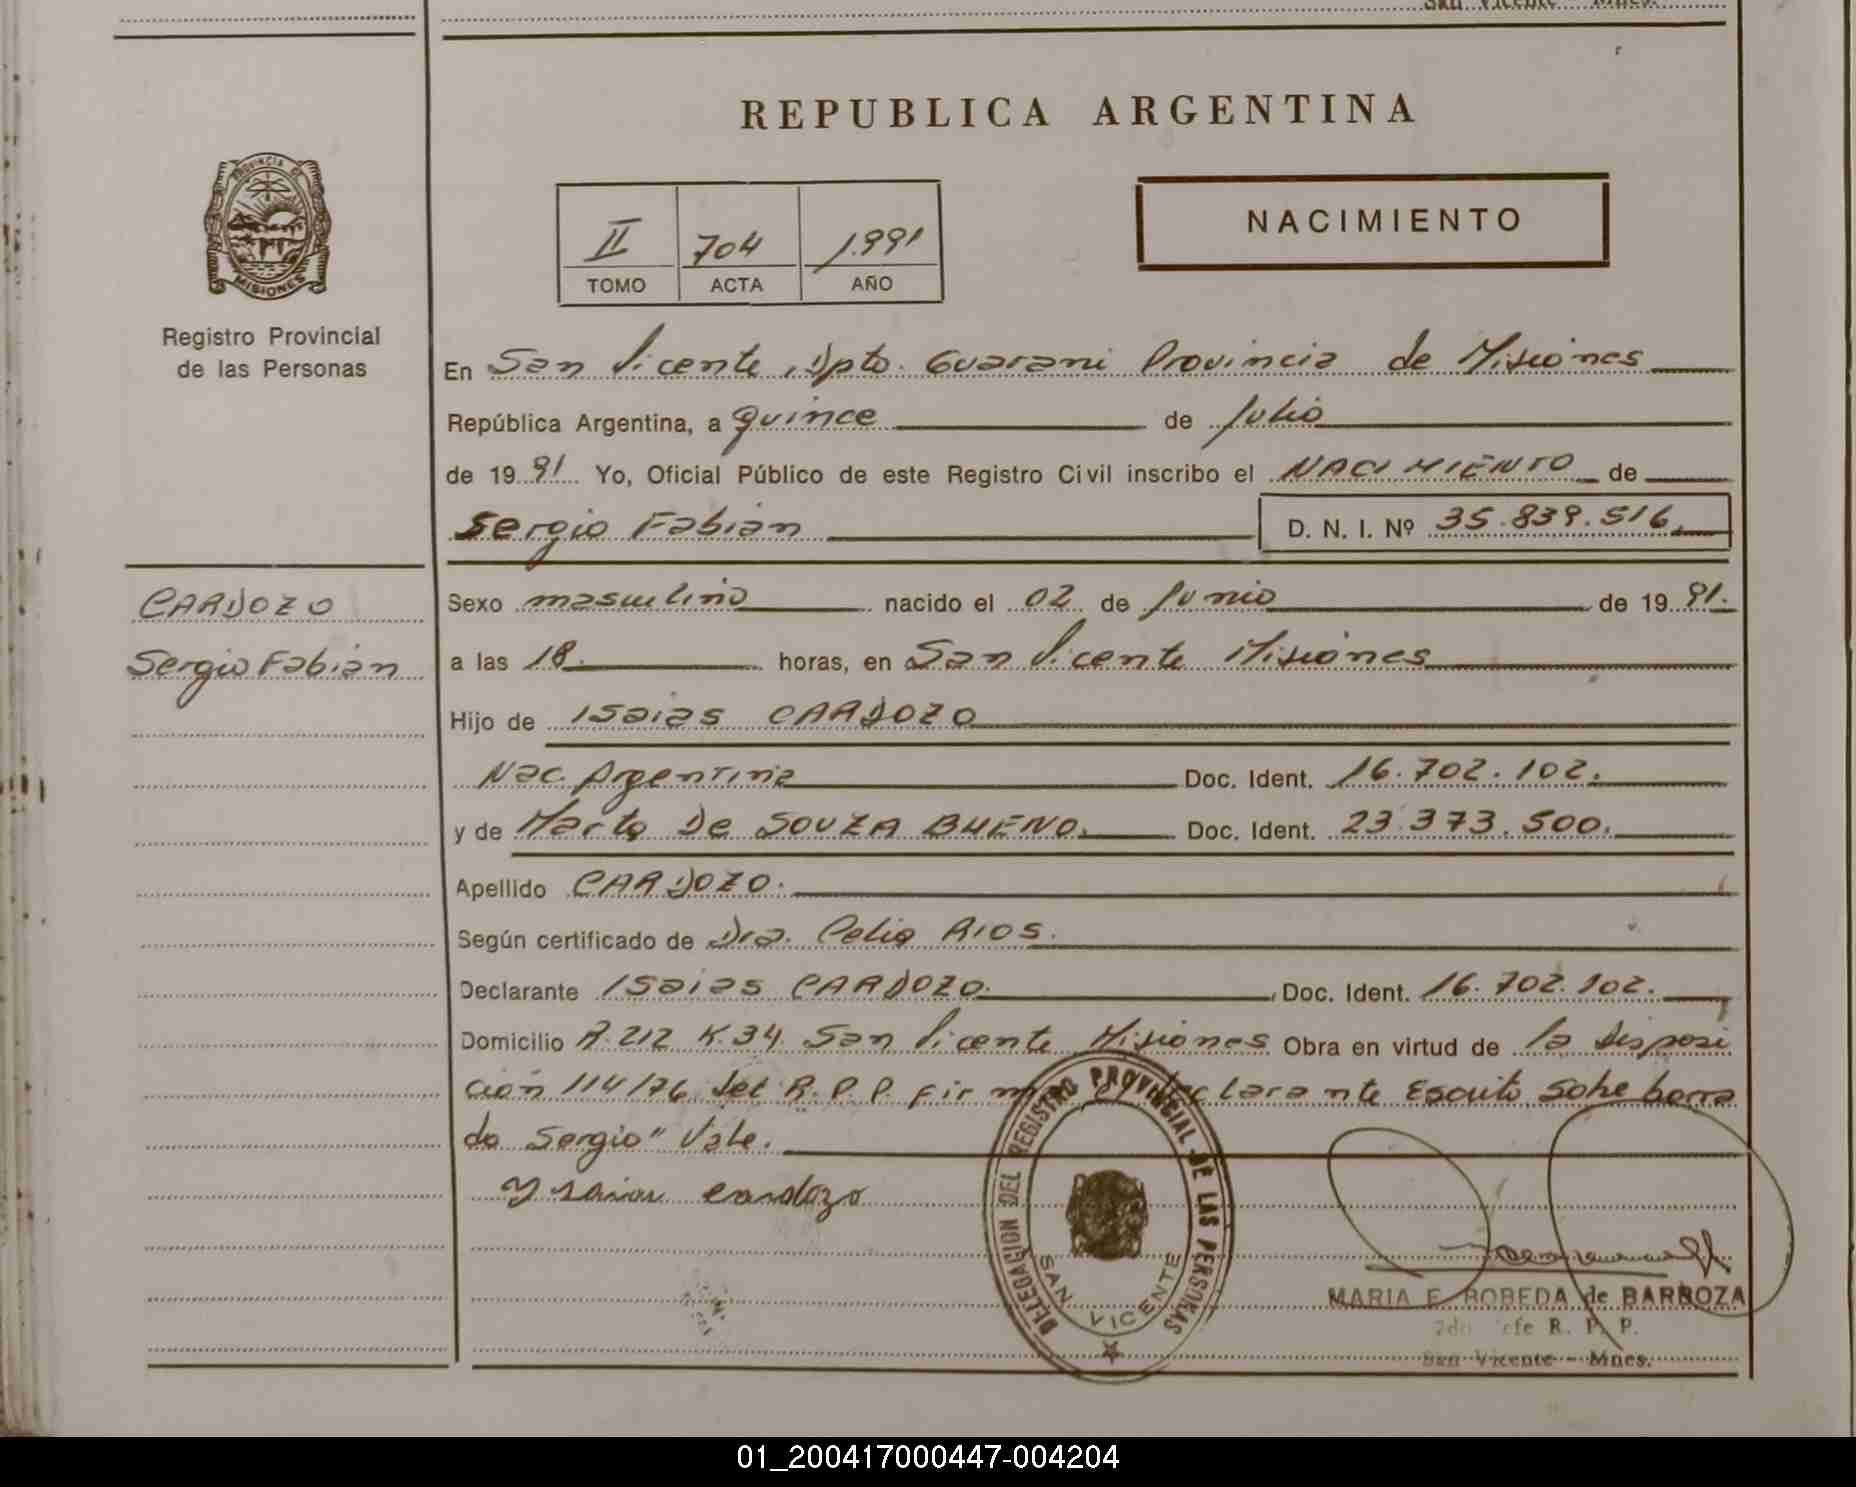 San Vicente - Mnes.
REPUBLICA ARGENTINA
PROVINCIA DE MISIONES
Registro Provincial
de las Personas
II 704 1.991
TOMO ACTA AÑO
NACIMIENTO
En San Vicente, Dpto. Guarani Provincia de Misiones
República Argentina, a quince de Julio
de 1991 Yo, Oficial Público de este Registro Civil inscribo el NACIMIENTO de
Sergio Fabián D. N. I. Nº 35.839.516.
CARDOZO
Sergio Fabián
Sexo masculino nacido el 02 de Junio de 1991.
a las 18. horas, en San Vicente Misiones
Hijo de Isaias CARDOZO
Nac. Argentina Doc. Ident. 16.702.102.
y de Marta De SOUZA BUENO. Doc. Ident. 23.373.500.
Apellido CARDOZO.
Según certificado de Dra. Celia RIOS.
Declarante Isaias CARDOZO. Doc. Ident. 16.702.102.
Domicilio R.212 K.34 San Vicente Misiones Obra en virtud de la Disposi
ción 114/76 del R.P.P. firma el declarante Escrito Sobre borra
do Sergio" Vale.
Ysaias cardozo
DELEGACION DEL REGISTRO PROVINCIAL DE LAS PERSONAS
SAN VICENTE
MARIA E. BOBEDA de BARBOZA
2do Jefe R. P. P.
San Vicente - Mnes.
01_200417000447-004204